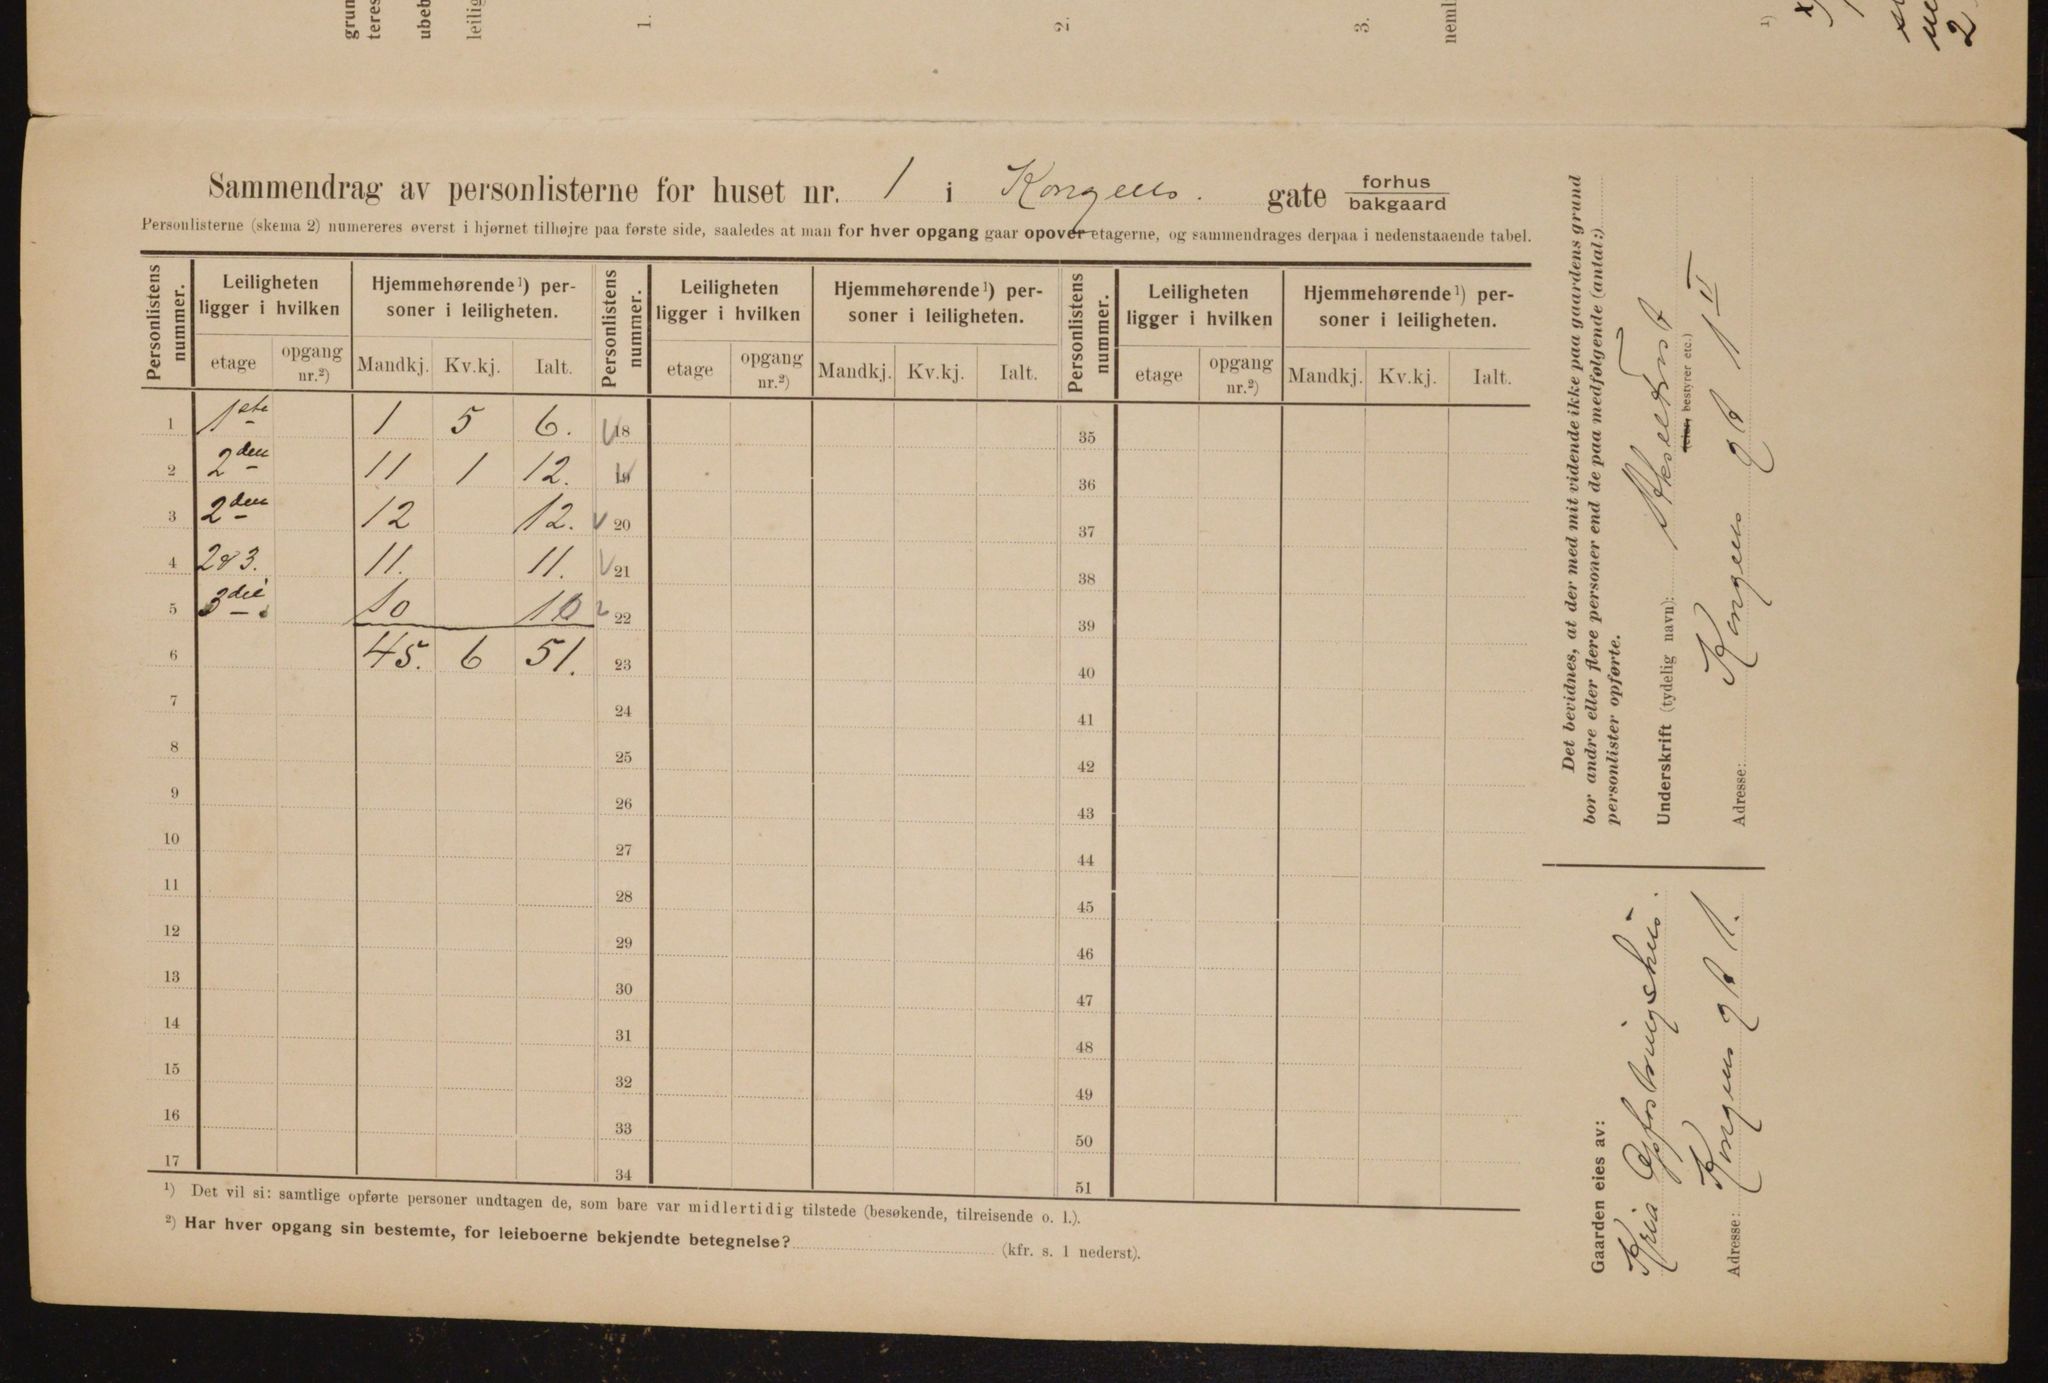 grun
teres
ubeb
leilig
1.
2.
3.
neml
1)
2
Sammendrag av personlisterne for huset nr. 1 i Kongens gate forhus
bakgaard
Personlisterne (skema 2) numereres øverst i hjørnet tilhøjre paa første side, saaledes at man for hver opgang gaar opover etagerne, og sammendrages derpaa i nedenstaaende tabel.
Personlistens nummer. Leiligheten ligger i hvilken Hjemmehørende¹) personer i leiligheten. Personlistens nummer. Leiligheten ligger i hvilken Hjemmehørende¹) personer i leiligheten. Personlistens nummer. Leiligheten ligger i hvilken Hjemmehørende¹) personer i leiligheten.
etage opgang nr.²) Mandkj. Kv.kj. Ialt. etage opgang nr.²) Mandkj. Kv.kj. Ialt. etage opgang nr.²) Mandkj. Kv.kj. Ialt.
1 1ste 1 5 6. 18 35
2 2den 11 1 12. 19 36
3 2den 12 12. 20 37
4 2&3. 11. 11. 21 38
5 3die 10 10 22 39
6 45. 6 51. 23 40
7 24 41
8 25 42
9 26 43
10 27 44
11 28 45
12 29 46
13 30 47
14 31 48
15 32 49
16 33 50
17 34 51
¹) Det vil si: samtlige opførte personer undtagen de, som bare var midlertidig tilstede (besøkende, tilreisende o. l.).
²) Har hver opgang sin bestemte, for leieboerne bekjendte betegnelse? (kfr. s. 1 nederst).
Det bevidnes, at der med mit vidende ikke paa gaardens grund
bor andre eller flere personer end de paa medfølgende (antal:)
personlister opførte.
Underskrift (tydelig navn):
(eier, bestyrer etc.)
Adresse: Kongens gt 1 II
Gaarden eies av:
Kria Opfostringshus.
Adresse: Kongens gt 1.